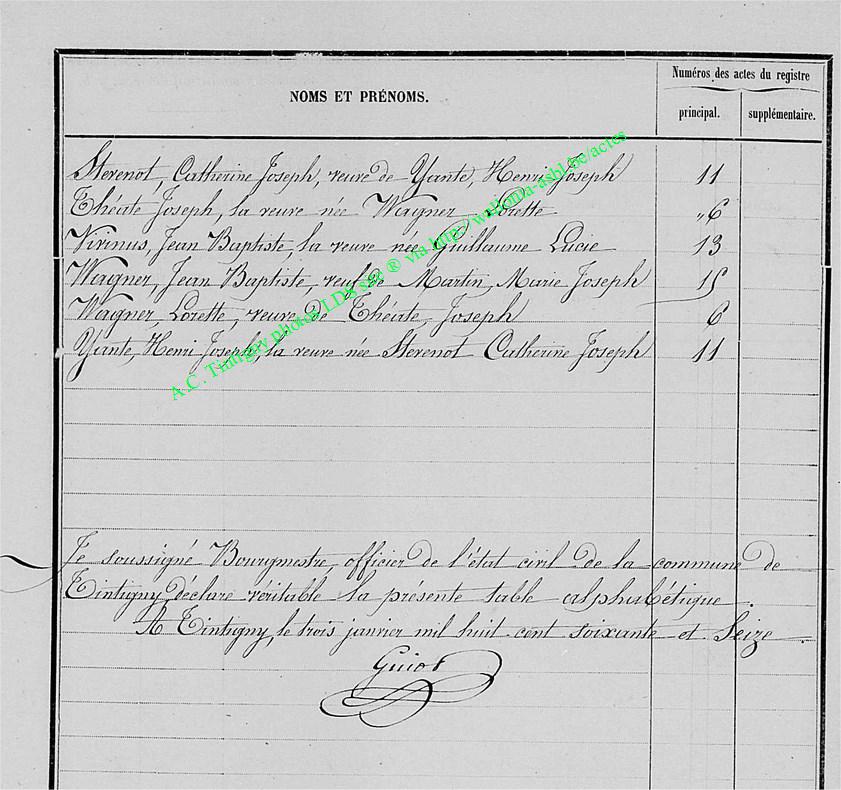 Numéros des actes du registre
NOMS ET PRÉNOMS.
principal. supplémentaire.
Sterenot, Catherine Joseph, veuve de Yante, Henri Joseph 11
Théate Joseph, la veuve née Wagner Lorette "6
Virinus, Jean Baptiste, la veuve née Guillaume Lucie 13
Wagner, Jean Baptiste, veuf de Martin, Marie Joseph 15
Wagner Lorette, veuve de Théate, Joseph 6
Yante, Henri Joseph, la veuve née Sterenot Catherine Joseph 11
A.C. Tintigny photos LDS site ® via http://wallonia-asbl.be/actes
Je soussigné Bourgmestre, officier de l'état civil de la commune de
Tintigny déclare véritable la présente table alphabétique.
A Tintigny, le trois janvier mil huit cent soixante et Seize.
Guiot